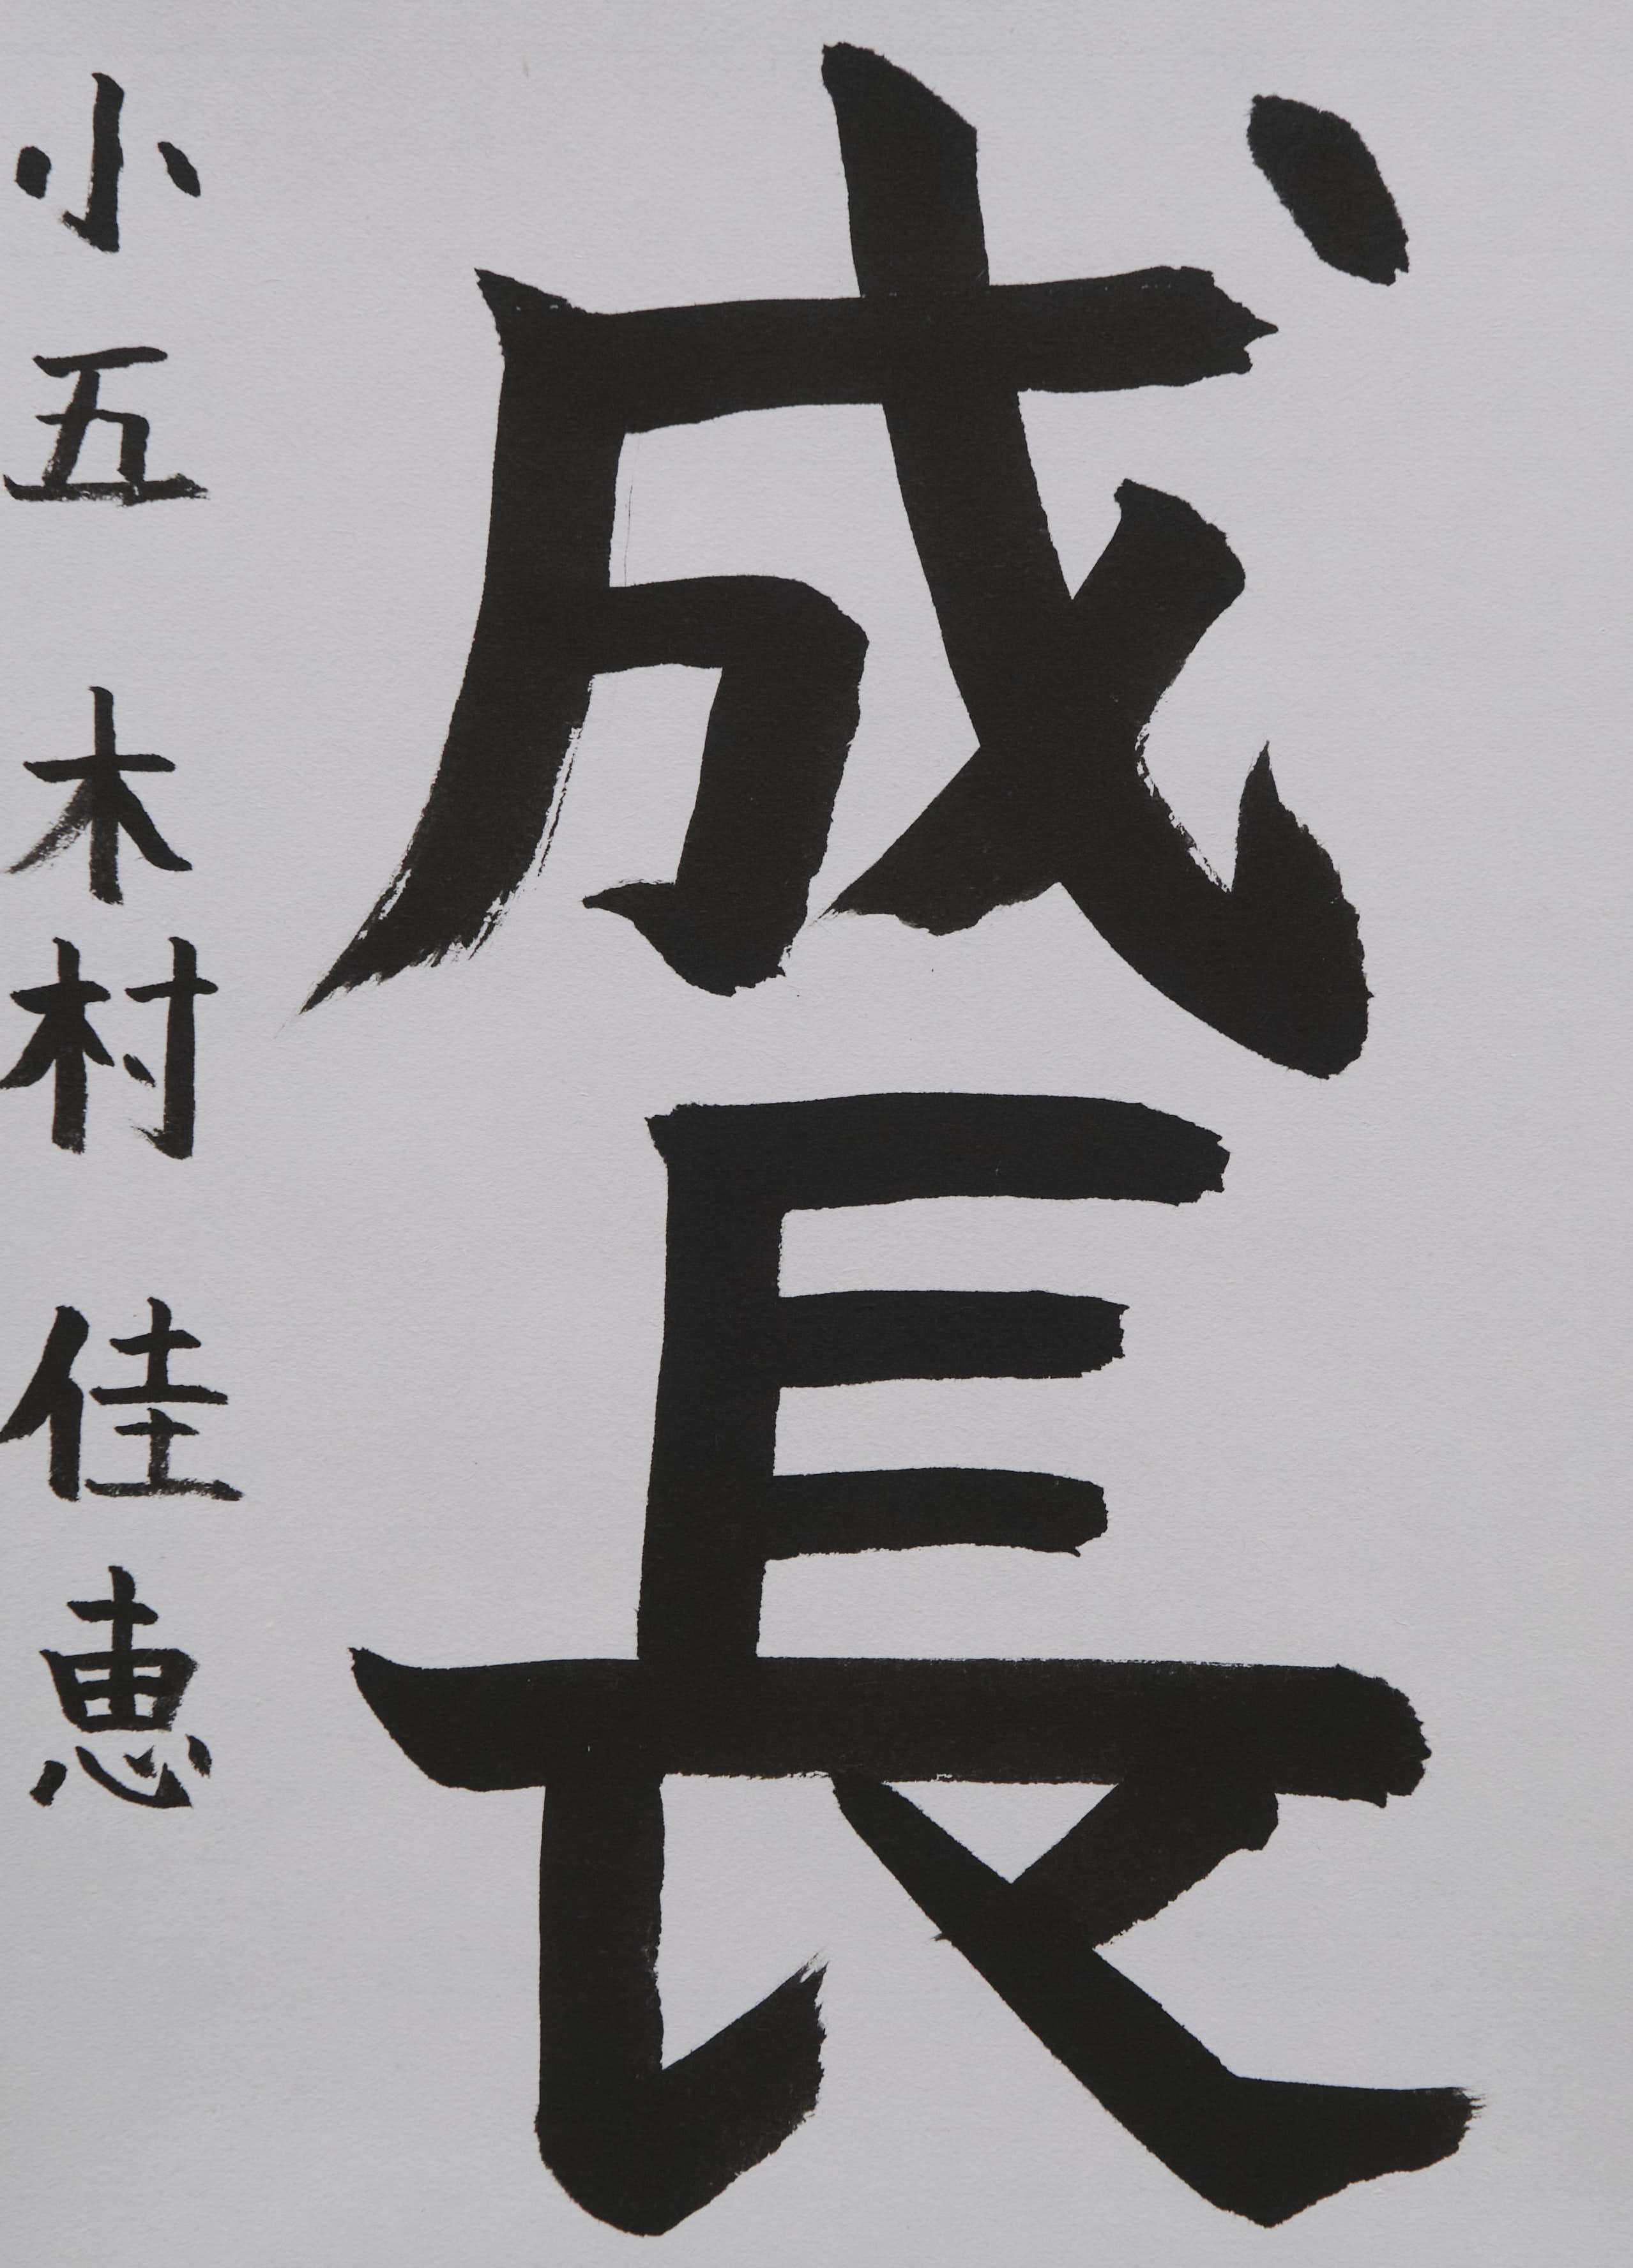 成長
小五 木村 佳恵